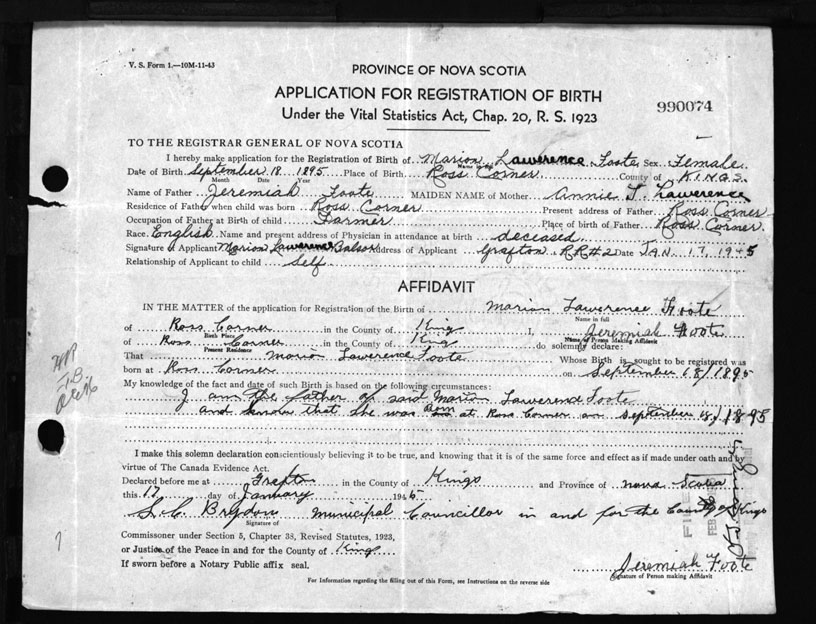 V. S. Form 1.—10M-11-43
PROVINCE OF NOVA SCOTIA
APPLICATION FOR REGISTRATION OF BIRTH
Under the Vital Statistics Act, Chap. 20, R. S. 1923
990074
TO THE REGISTRAR GENERAL OF NOVA SCOTIA
I hereby make application for the Registration of Birth of Marion Lawerence Foote Sex Female
Name in full
Date of Birth September 18 1895 Place of Birth Ross Corner County of KINGS
Month Date Year
Name of Father Jeremiah Foote MAIDEN NAME of Mother Annie T. Lawerence
Residence of Father when child was born Ross Corner Present address of Father Ross Corner
Occupation of Father at Birth of child Farmer Place of birth of Father Ross Corner
Race English Name and present address of Physician in attendance at birth deceased
Signature of Applicant Marion Lawerence Balsor Address of Applicant Grafton RR#2 Date JAN. 17, 1945
Relationship of Applicant to child Self
AFFIDAVIT
IN THE MATTER of the application for Registration of the Birth of Marion Lawerence Foote
Name in full
of Ross Corner in the County of King I, Jeremiah Foote
Birth Place Name of Person Making Affidavit
of Ross Corner in the County of King do solemnly declare:
Present Residence
That Marion Lawerence Foote Whose Birth is sought to be registered was
born at Ross Corner on September 18/1895
My knowledge of the fact and date of such Birth is based on the following circumstances:
I am the father of said Marion Lawerence Foote
and know that she was Born at Ross Corner on September 18/1895
I make this solemn declaration conscientiously believing it to be true, and knowing that it is of the same force and effect as if made under oath and by
virtue of The Canada Evidence Act.
Declared before me at Grafton in the County of Kings and Province of Nova Scotia
this 17 day of January 1945
S. C. Brydon Municipal Councillor in and for the County of Kings
Signature of
Commissioner under Section 5, Chapter 38, Revised Statutes, 1923,
or Justice of the Peace in and for the County of Kings
If sworn before a Notary Public affix seal.
Jeremiah Foote
Signature of Person making Affidavit
For Information regarding the filling out of this Form, see Instructions on the reverse side